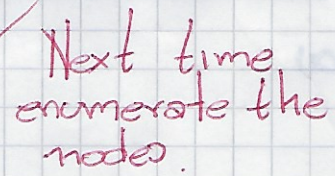 Next time
enumerate the
nodes.